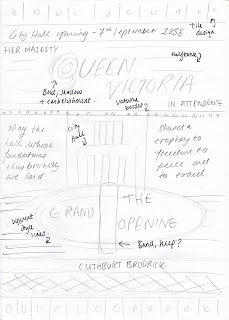 City Hall opening - 7th September 1858
Tile design
HER MAJESTY
Halftone
QUEEN
VICTORIA
Bold, shallow
+ embellishment
IN ATTENDENCE
May the
hall whose
foundations
thus broadly
we laid
city
hall
Stand a
trophy to
freedom to
peace and
to trade
THE
GRAND
OPENING
different
style
lines
CUTHBURT BRODRICK